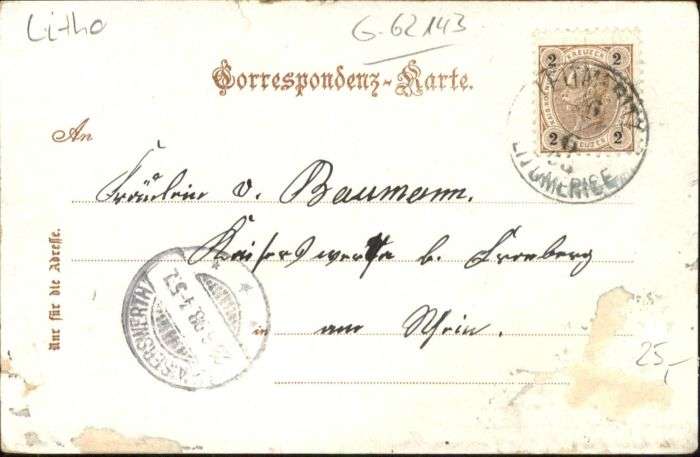 Litho
G-62143
Correspondenz-Karte.
2 KREUZER 2
2 2
LITOMĚŘICE
An
Fräulein v. Baumann.
Kaiserswerth b. Cronberg
in am Rhein.
Nur für die Adresse.
KAISERSWERTH
25,-